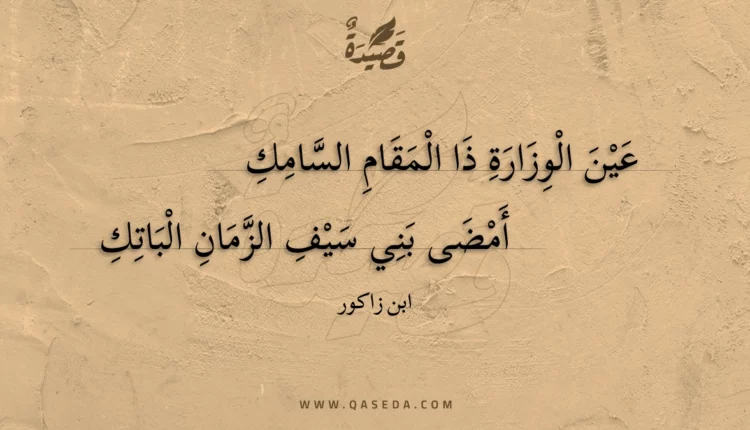 قَصِيدَةٌ
عَيْنَ الْوِزَارَةِ ذَا الْمَقَامِ السَّامِكِ
أَمْضَى بَنِي سَيْفِ الزَّمَانِ الْبَاتِكِ
ابن زاكور
WWW.QASEDA.COM